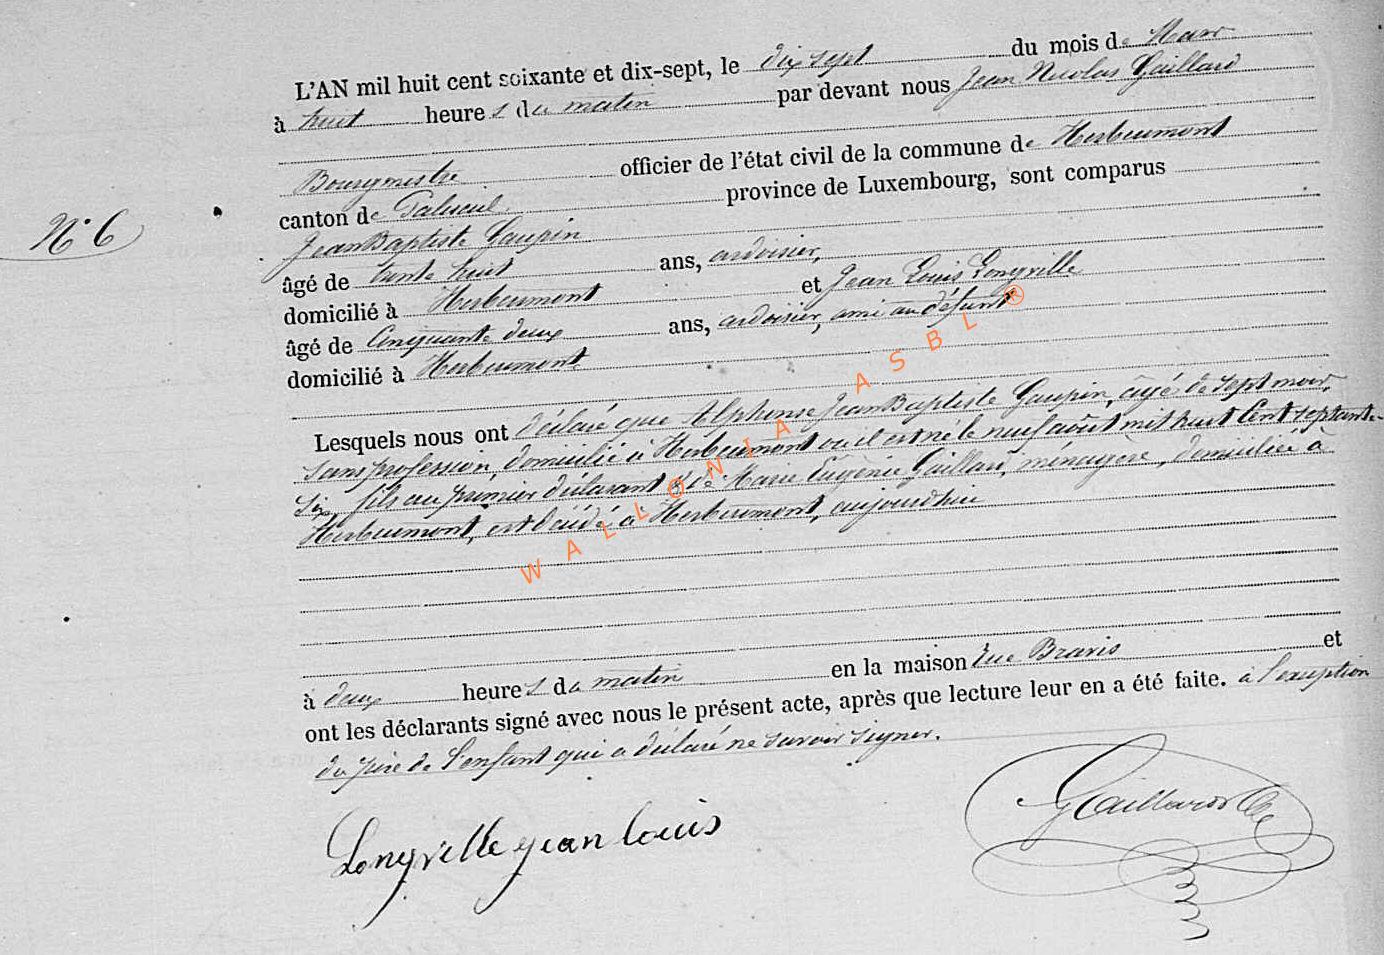 L'AN mil huit cent soixante et dix-sept, le dix sept du mois de Mars
à huit heures du matin par devant nous Jean Nicolas Gaillard
Bourgmestre officier de l'état civil de la commune de Herbeumont
canton de Paliseul province de Luxembourg, sont comparus
Jean Baptiste Gaupin
âgé de trente huit ans, ardoisier,
domicilié à Herbeumont et Jean Louis Longville
âgé de Cinquante deux ans, ardoisier, ami au défunt
domicilié à Herbeumont
N° 6
Lesquels nous ont déclaré que Alphonse Jean Baptiste Gaupin, âgé de sept mois,
sans profession, domicilié à Herbeumont où il est né le neuf août mil huit Cent septante-
six, fils au premier déclarant & de Marie Eugénie Gaillard, ménagère, domiciliée à
Herbeumont, est décédé à Herbeumont, aujourdhui
à deux heures du matin en la maison rue Bravis et
ont les déclarants signé avec nous le présent acte, après que lecture leur en a été faite. à l'exception
du père de l'enfant qui a déclaré ne savoir signer.
Longville jean louis
Gaillard
WALLONIA ASBL ®